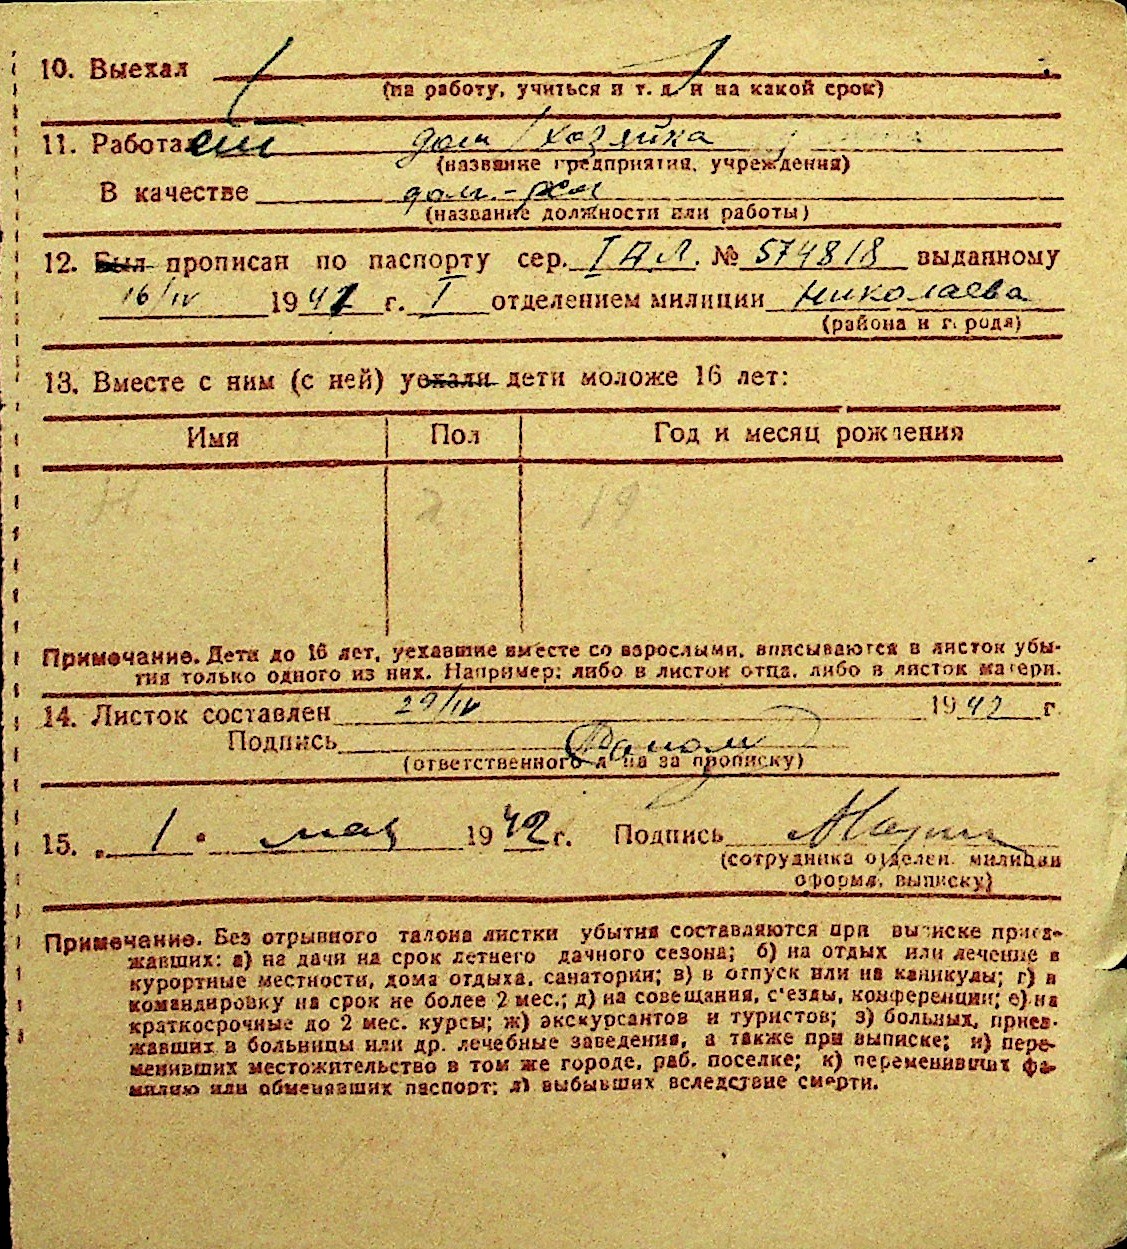 10. Выехал
(на работу, учиться и т. д. и на какой срок)
11. Работает дом/хозяйка
(название предприятия, учреждения)
В качестве дом.-хоз
(название должности или работы)
12. Был прописан по паспорту сер. I АЛ. № 574818 выданному
16/IV 1941 г. I отделением милиции Николаева
(района и города)
13. Вместе с ним (с ней) уехали дети моложе 16 лет:
Имя Пол Год и месяц рождения
Примечание. Дети до 16 лет, уехавшие вместе со взрослыми, вписываются в листок убы-
тия только одного из них. Например: либо в листок отца, либо в листок матери.
14. Листок составлен 29/IV 1942 г.
Подпись
(ответственного лица за прописку)
15. „1" мая 1942 г. Подпись
(сотрудника отделен. милиции
оформл. выписку)
Примечание. Без отрывного талона листки убытия составляются при выписке приез-
жавших: а) на дачи на срок летнего дачного сезона; б) на отдых или лечение в
курортные местности, дома отдыха, санатории; в) в отпуск или на каникулы; г) в
командировку на срок не более 2 мес.; д) на совещания, с'езды, конференции; е) на
краткосрочные до 2 мес. курсы; ж) экскурсантов и туристов; з) больных, приез-
жавших в больницы или др. лечебные заведения, а также при выписке; и) пере-
менивших местожительство в том же городе, раб. поселке; к) переменивших фа-
милию или обменявших паспорт; л) выбывших вследствие смерти.